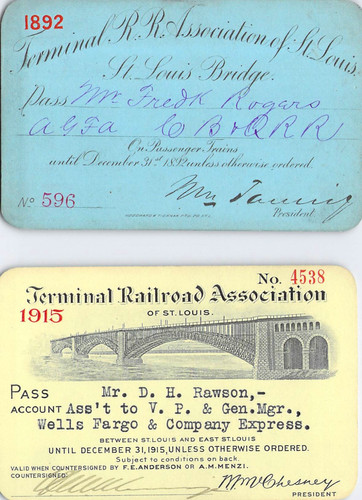 1892
Terminal R.R. Association of St. Louis
St. Louis Bridge.
Pass Mr Fredk Rogers
A G F A C B & Q R R
On Passenger Trains
until December 31st 1892 unless otherwise ordered.
No 596
Wm Taussig
President.
No. 4538
Terminal Railroad Association
1915
OF ST. LOUIS.
PASS Mr. D. H. Rawson,-
ACCOUNT Ass't to V. P. & Gen. Mgr.,
Wells Fargo & Company Express.
BETWEEN ST. LOUIS AND EAST ST. LOUIS
UNTIL DECEMBER 31, 1915, UNLESS OTHERWISE ORDERED.
Subject to conditions on back.
VALID WHEN COUNTERSIGNED BY F. E. ANDERSON OR A. M. MENZI.
COUNTERSIGNED:
W M McChesney
PRESIDENT